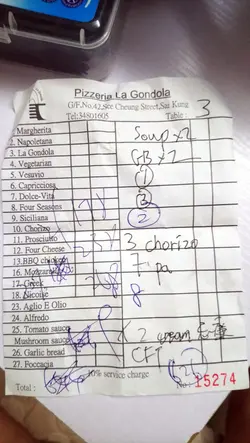 Pizzeria La Gondola
G/F,No.42,See Cheung Street,Sai Kung
Tel:34801605 Table: 3
1. Margherita
2. Napoletana Soup x2
3. La Gondola GB x2
4. Vegetarian
5. Vesuvio 1
6. Capricciosa
7. Dolce-Vita 3
8. Four Seasons
9. Siciliana 2
10. Chorizo
11. Prosciutto
12. Four Cheese 3 chorizo
13.BBQ chicken
16. 7 pa
17. Greek
18. 8
23. Aglio E Olio
24. Alfredo
25. Tomato sauce 2 cream
Mushroom sauce
26. Garlic bread
27. Foccacia
10% service charge
Total : No. 15274